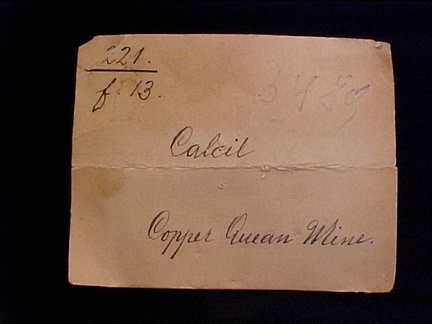 221.
f. 13.
3480
Calcit
Copper Quean Mine.